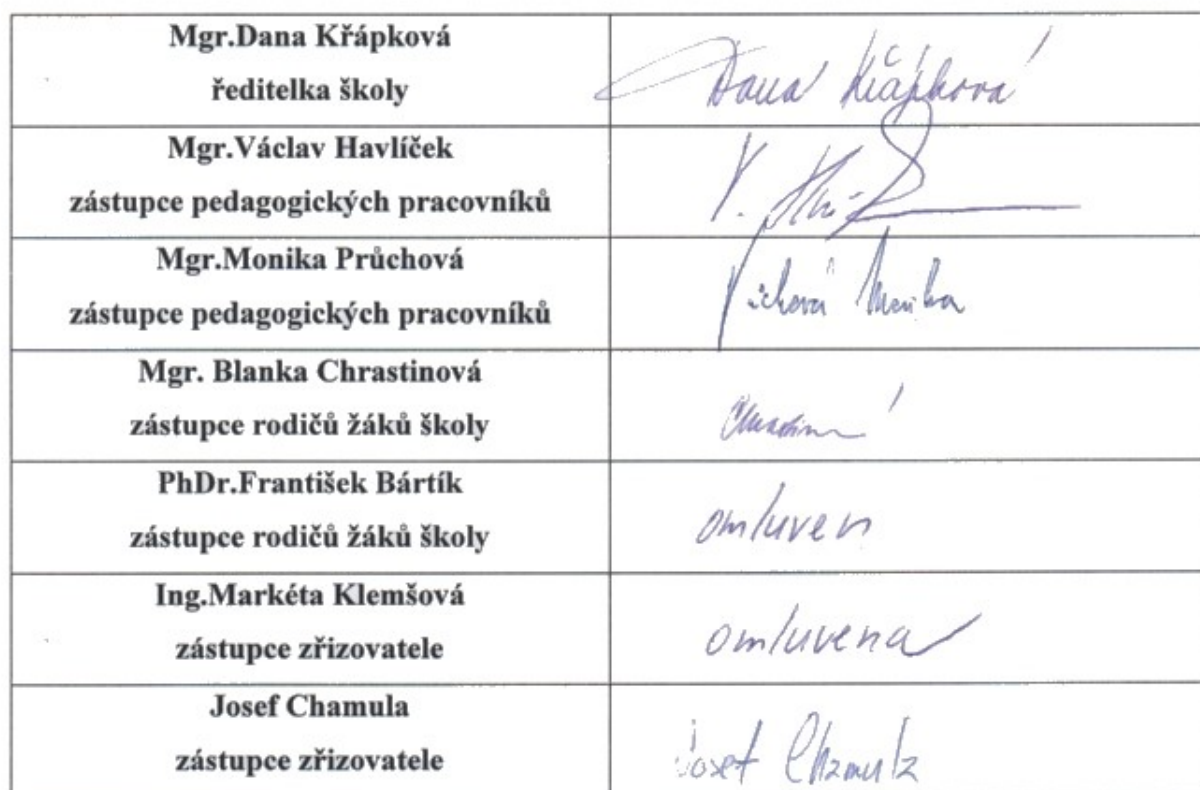 Mgr.Dana Křápková
ředitelka školy
Dana Křápková
Mgr.Václav Havlíček
zástupce pedagogických pracovníků
V.
Mgr.Monika Průchová
zástupce pedagogických pracovníků
Monika
Mgr. Blanka Chrastinová
zástupce rodičů žáků školy
PhDr.František Bártík
zástupce rodičů žáků školy
omluven
Ing.Markéta Klemšová
zástupce zřizovatele
omluvena
Josef Chamula
zástupce zřizovatele
Josef Chamula